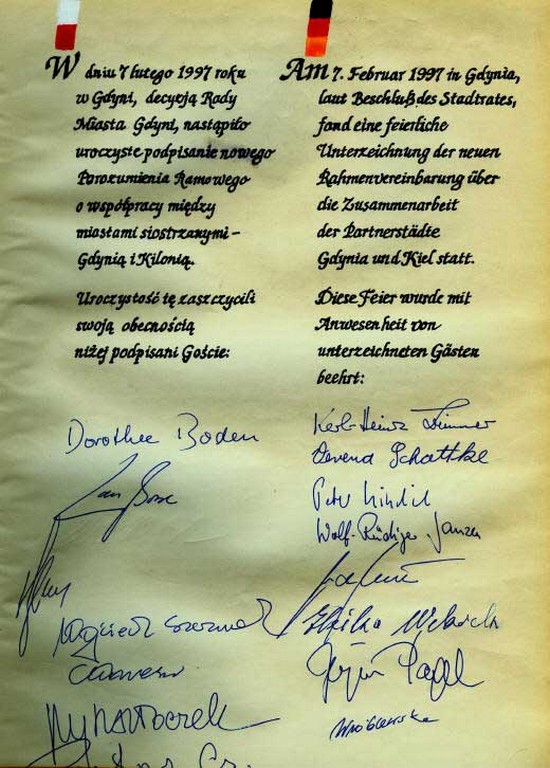 W dniu 7 lutego 1997 roku
w Gdyni, decyzją Rady
Miasta Gdyni, nastąpiło
uroczyste podpisanie nowego
Porozumienia Ramowego
o współpracy między
miastami siostrzanymi –
Gdynią i Kilonią.
Uroczystość tę zaszczycili
swoją obecnością
niżej podpisani Goście:
Am 7. Februar 1997 in Gdynia,
laut Beschluß des Stadtrates,
fand eine feierliche
Unterzeichnung der neuen
Rahmenvereinbarung über
die Zusammenarbeit
der Partnerstädte
Gdynia und Kiel statt.
Diese Feier wurde mit
Anwesenheit von
unterzeichneten Gästen
beehrt:
Dorothee Boden
Wojciech
Karl-Heinz
Schattke
Peter
Wolf-Rüdiger
Wróblewska